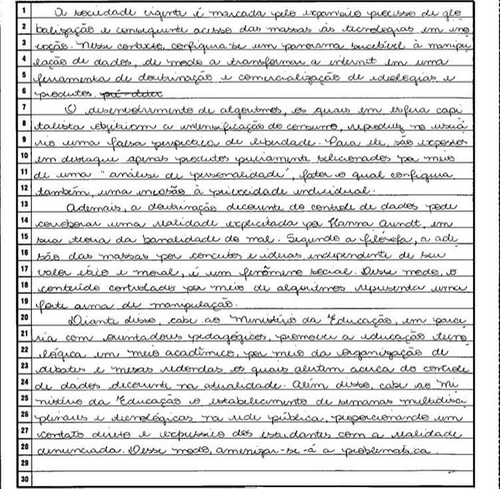 1 A sociedade vigente é marcada pelo expansivo processo de glo
2 balização e consequente acesso das massas às tecnologias em ino
3 vação. Nesse contexto, configura-se um panorama suscetível à manipu
4 lação de dados, de modo a transformar a internet em uma
5 ferramenta de doutrinação e comercialização de ideologias e
6 produtos.
7 O desenvolvimento de algoritmos, os quais em esfera capi
8 talista objetivam a intensificação do consumo, reproduz no usuá
9 rio uma falsa perspectiva de liberdade. Para ele, são expostos
10 em destaque apenas produtos previamente selecionados por meio
11 de uma "análise de personalidade", fator o qual configura
12 também, uma invasão à privacidade individual.
13 Ademais, a doutrinação decorrente do controle de dados pode
14 corroborar uma realidade explicitada por Hanna Arendt, em
15 sua teoria da banalidade do mal. Segundo a filósofa, a ade
16 são das massas por conceitos e ideias independente de seu
17 valor ético e moral, é um fenômeno social. Desse modo, o
18 conteúdo controlado por meio de algoritmos representa uma
19 forte arma de manipulação.
20 Diante disso, cabe ao Ministério da Educação, em parce
21 ria com orientadores pedagógicos, promover a educação tecno
22 lógica em meio acadêmico, por meio da organização de
23 debates e mesas redondas os quais alertem acerca do controle
24 de dados decorrente na atualidade. Além disso, cabe ao Mi
25 nistério da Educação o estabelecimento de semanas multidisci
26 plinares e tecnológicas na rede pública, proporcionando um
27 contato direto e expressivo dos estudantes com a realidade
28 denunciada. Desse modo, amenizar-se-á a problemática.
29
30